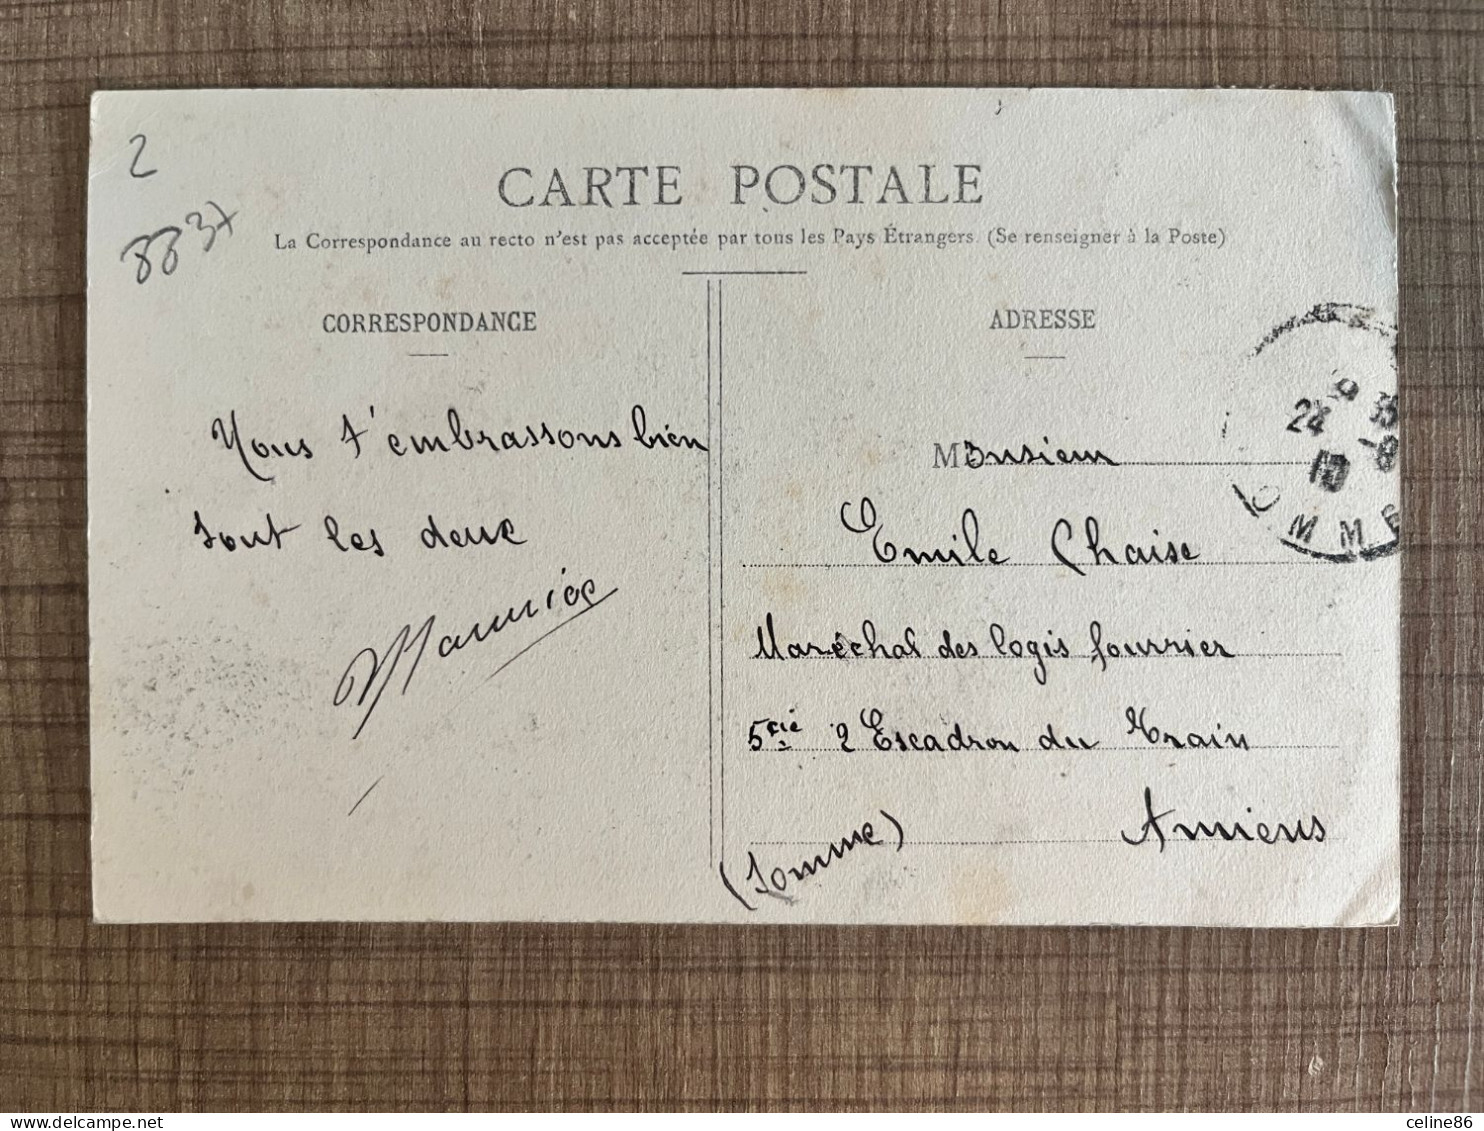 2
8837
CARTE POSTALE
La Correspondance au recto n'est pas acceptée par tous les Pays Étrangers. (Se renseigner à la Poste)
CORRESPONDANCE
Nous t'embrassons bien
tout les deux
ADRESSE
24
10
OMME
Monsieur
Emile Chaise
Maréchal des logis fourrier
5cie 2 Escadron du Train
Amiens
(Somme)
celine86